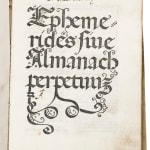 Epheme
rides siue
Almanach
perpetuū